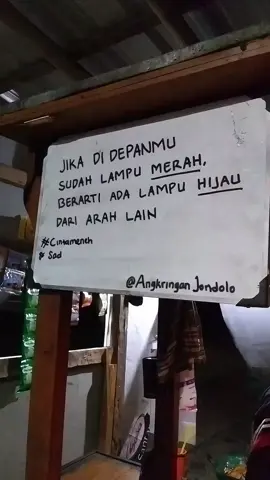 JIKA DI DEPANMU
SUDAH LAMPU MERAH,
BERARTI ADA LAMPU HIJAU
DARI ARAH LAIN
#Cintameneh
# Sad
@Angkringan Jondolo